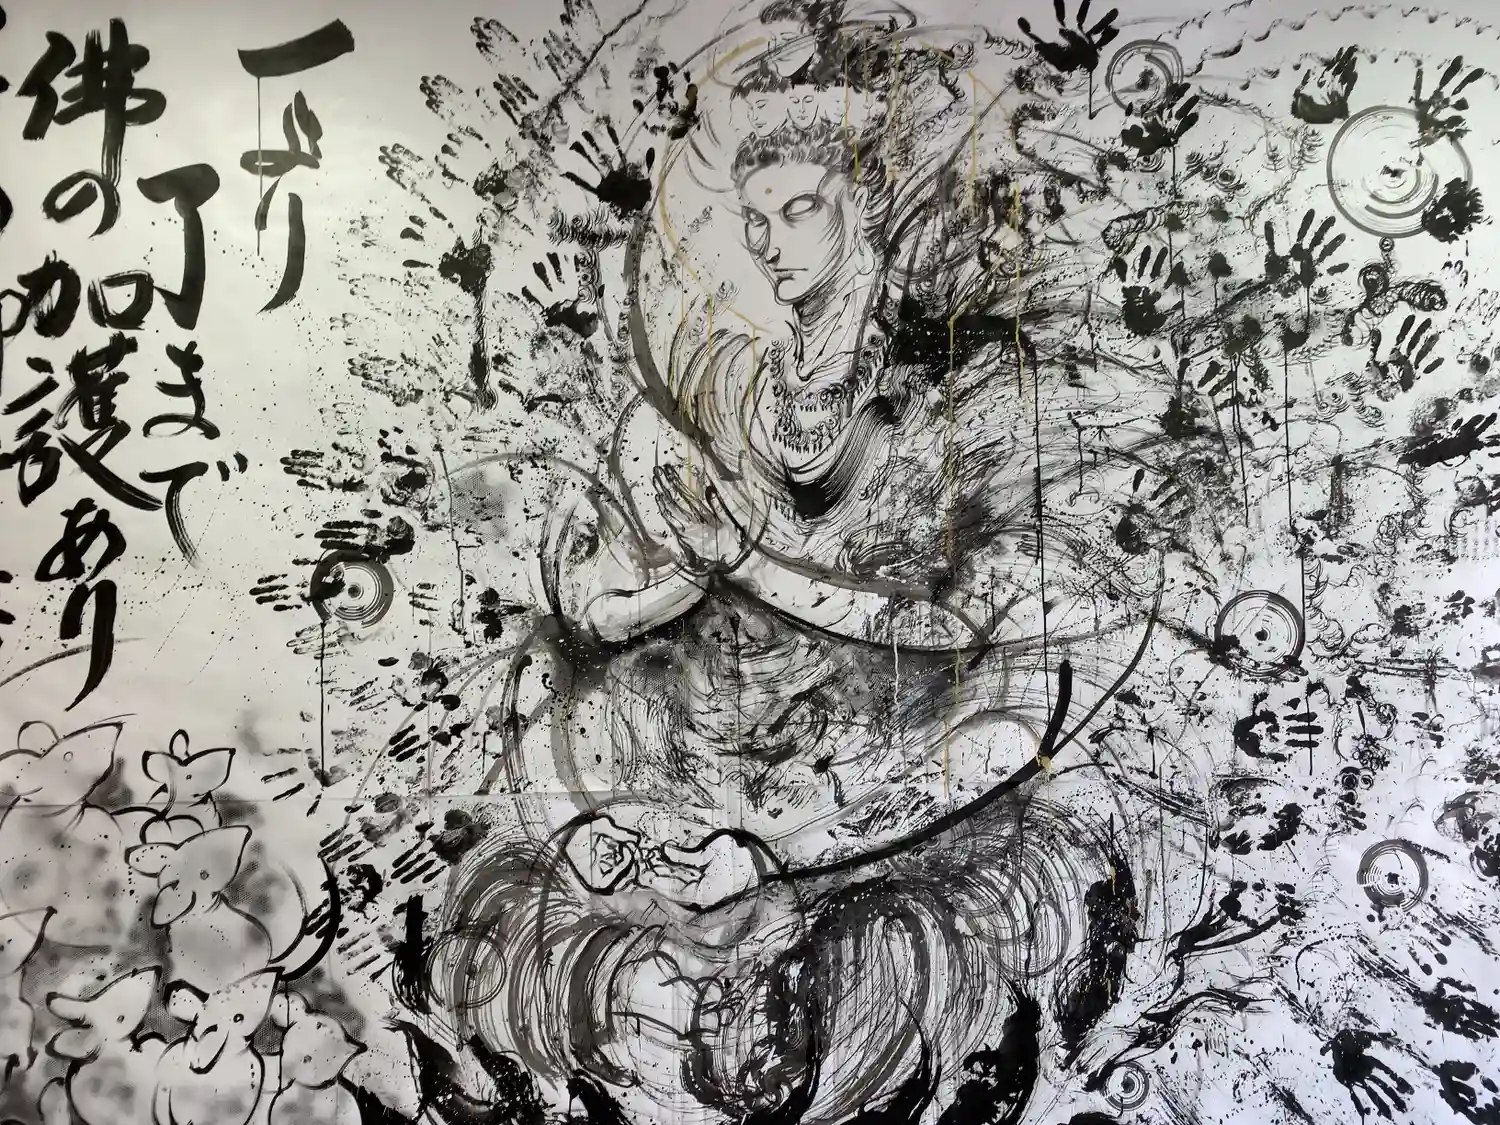 一より
了まで
佛の加護あり